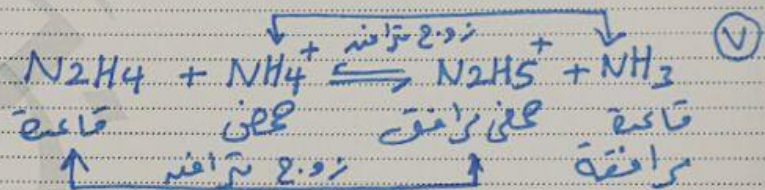 زوج مترافق ٧
N2H4 + NH4+ ⇌ N2H5+ + NH3
قاعدة حمض حمض مرافق قاعدة
زوج مترافق مرافقة